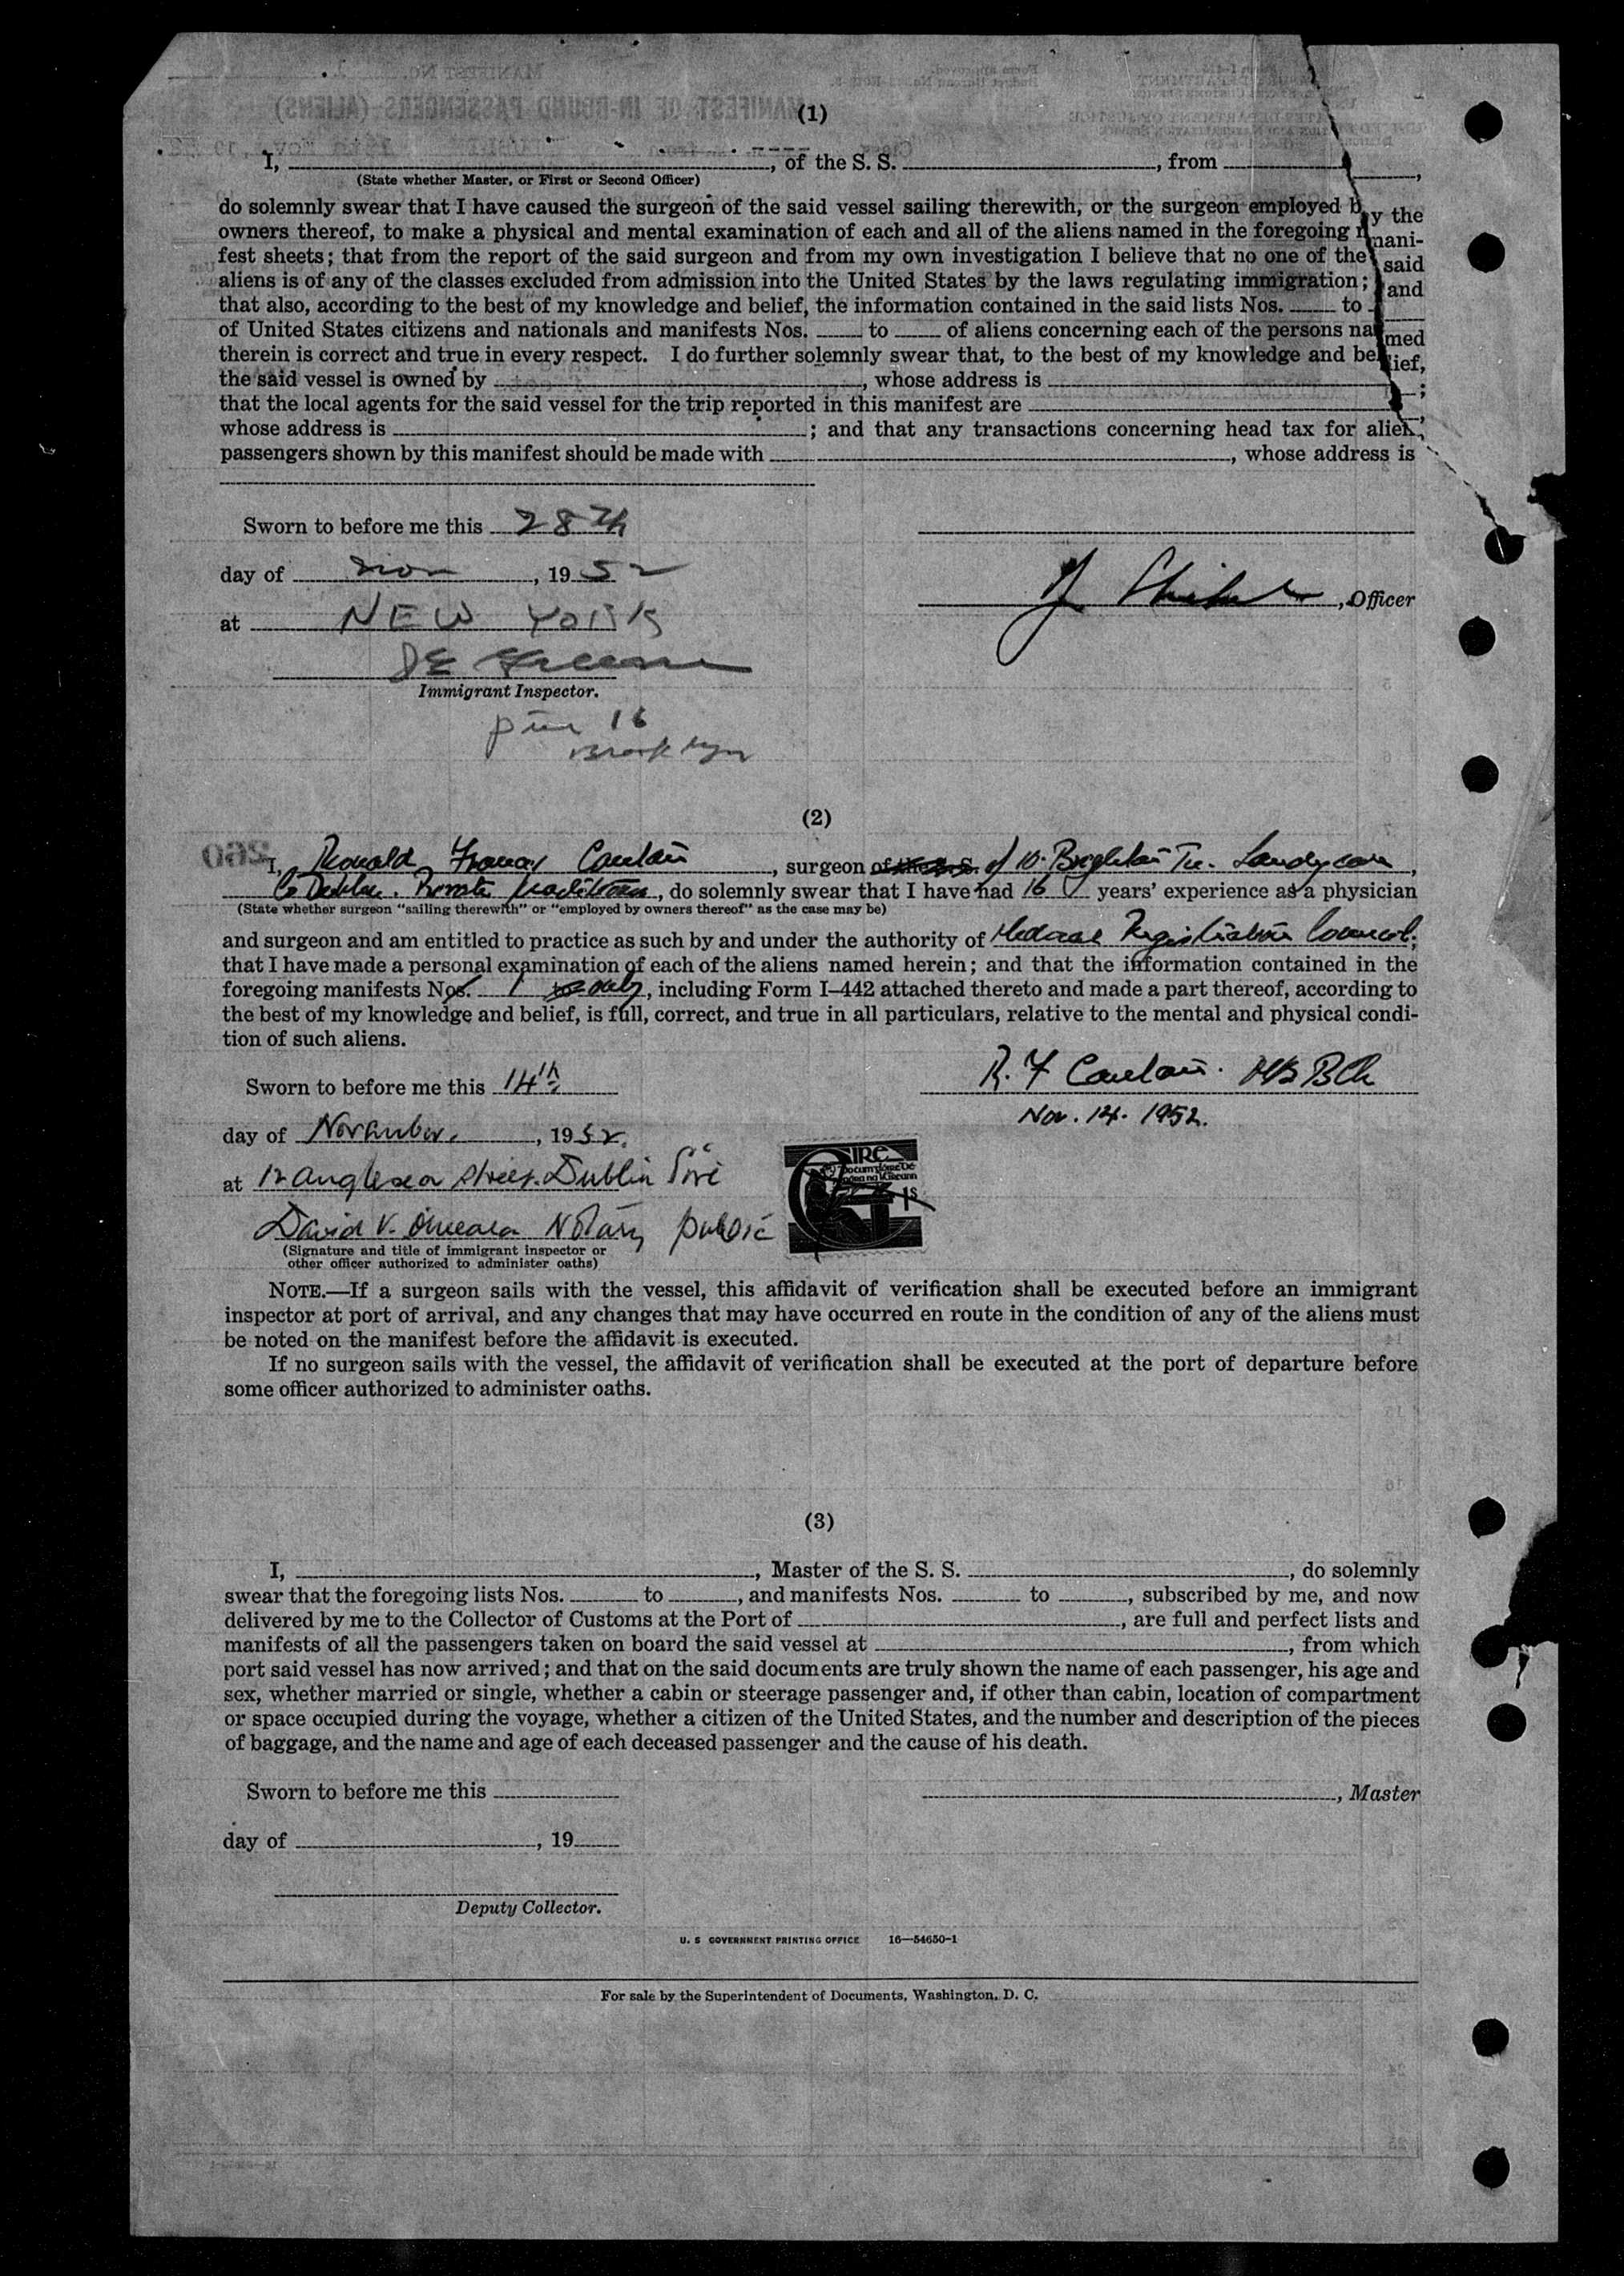 (1)
I, , of the S. S. , from ,
(State whether Master, or First or Second Officer)
do solemnly swear that I have caused the surgeon of the said vessel sailing therewith, or the surgeon employed by the
owners thereof, to make a physical and mental examination of each and all of the aliens named in the foregoing mani-
fest sheets; that from the report of the said surgeon and from my own investigation I believe that no one of the said
aliens is of any of the classes excluded from admission into the United States by the laws regulating immigration; and
that also, according to the best of my knowledge and belief, the information contained in the said lists Nos. to
of United States citizens and nationals and manifests Nos. to of aliens concerning each of the persons named
therein is correct and true in every respect. I do further solemnly swear that, to the best of my knowledge and belief,
the said vessel is owned by , whose address is ;
that the local agents for the said vessel for the trip reported in this manifest are ,
whose address is ; and that any transactions concerning head tax for alien
passengers shown by this manifest should be made with , whose address is
Sworn to before me this 28th
day of Nov , 1952
at NEW YORK
, Officer
Immigrant Inspector.
pier 16
Brooklyn
(2)
260
I, Ronald Francis , surgeon of the S. S. of 10. Brighton Tce.
Co Dublin. Private practitioner, do solemnly swear that I have had 16 years' experience as a physician
(State whether surgeon "sailing therewith" or "employed by owners thereof" as the case may be)
and surgeon and am entitled to practice as such by and under the authority of Medical Registration Council;
that I have made a personal examination of each of the aliens named herein; and that the information contained in the
foregoing manifests Nos. 1 to only, including Form I–442 attached thereto and made a part thereof, according to
the best of my knowledge and belief, is full, correct, and true in all particulars, relative to the mental and physical condi-
tion of such aliens.
R. F MB BCh
Sworn to before me this 14th
Nov. 14. 1952.
day of November, 1952.
at 12 Anglesea Street. Dublin Éire
EIRE
1s
David V. O'Meara Notary public
(Signature and title of immigrant inspector or
other officer authorized to administer oaths)
NOTE.—If a surgeon sails with the vessel, this affidavit of verification shall be executed before an immigrant
inspector at port of arrival, and any changes that may have occurred en route in the condition of any of the aliens must
be noted on the manifest before the affidavit is executed.
If no surgeon sails with the vessel, the affidavit of verification shall be executed at the port of departure before
some officer authorized to administer oaths.
(3)
I, , Master of the S. S. , do solemnly
swear that the foregoing lists Nos. to , and manifests Nos. to , subscribed by me, and now
delivered by me to the Collector of Customs at the Port of , are full and perfect lists and
manifests of all the passengers taken on board the said vessel at , from which
port said vessel has now arrived; and that on the said documents are truly shown the name of each passenger, his age and
sex, whether married or single, whether a cabin or steerage passenger and, if other than cabin, location of compartment
or space occupied during the voyage, whether a citizen of the United States, and the number and description of the pieces
of baggage, and the name and age of each deceased passenger and the cause of his death.
Sworn to before me this
, Master
day of , 19
Deputy Collector.
U. S GOVERNMENT PRINTING OFFICE 16—54650-1
For sale by the Superintendent of Documents, Washington, D. C.